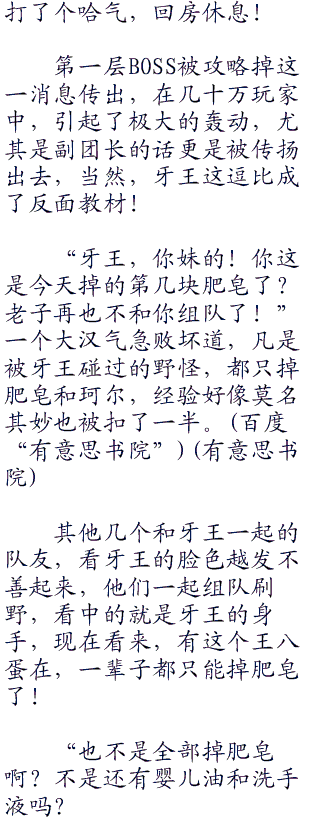 打了个哈气，回房休息！
第一层BOSS被攻略掉这
一消息传出，在几十万玩家
中，引起了极大的轰动，尤
其是副团长的话更是被传扬
出去，当然，牙王这逗比成
了反面教材！
“牙王，你妹的！你这
是今天掉的第几块肥皂了？
老子再也不和你组队了！”
一个大汉气急败坏道，凡是
被牙王碰过的野怪，都只掉
肥皂和珂尔，经验好像莫名
其妙也被扣了一半。(百度
“有意思书院”)(有意思书
院)
其他几个和牙王一起的
队友，看牙王的脸色越发不
善起来，他们一起组队刷
野，看中的就是牙王的身
手，现在看来，有这个王八
蛋在，一辈子都只能掉肥皂
了！
“也不是全部掉肥皂
啊？不是还有婴儿油和洗手
液吗？